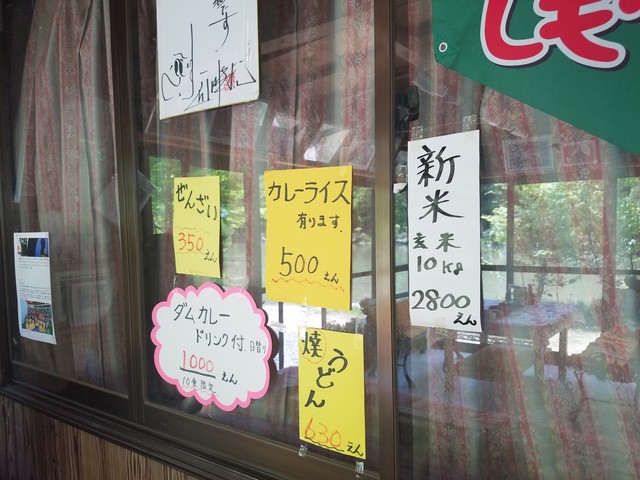 です
しも
新
米
玄米
10kg
2800えん
ぜんざい
350えん
カレーライス
有ります.
500えん
ダムカレー
ドリンク付.日替り
1000えん
10食限定
焼うどん
630えん